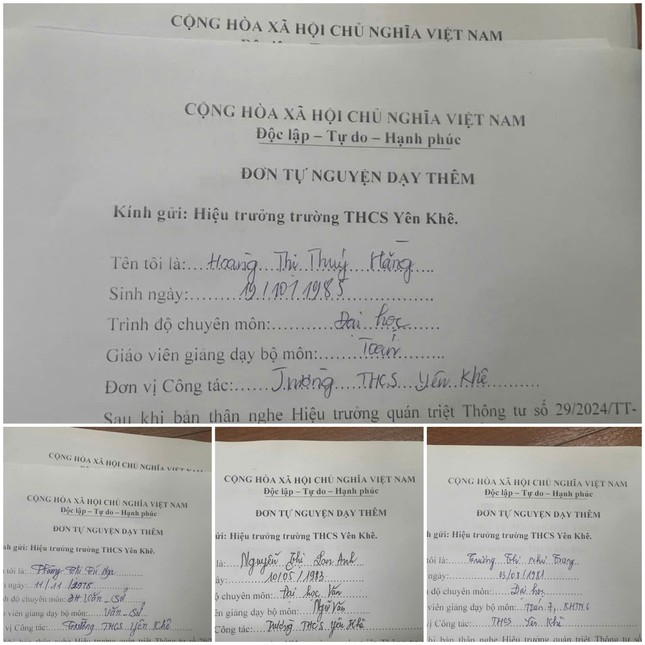 CỘNG HÒA XÃ HỘI CHỦ NGHĨA VIỆT NAM
CỘNG HÒA XÃ HỘI CHỦ NGHĨA VIỆT NAM
Độc lập – Tự do – Hạnh phúc
ĐƠN TỰ NGUYỆN DẠY THÊM
Kính gửi: Hiệu trưởng trường THCS Yên Khê.
Tên tôi là: Hoàng Thị Thuý Hằng
Sinh ngày: 19/10/1985
Trình độ chuyên môn: Đại học
Giáo viên giảng dạy bộ môn: Toán
Đơn vị Công tác: Trường THCS Yên Khê
Sau khi bản thân nghe Hiệu trưởng quán triệt Thông tư số 29/2024/TT-
CỘNG HÒA XÃ HỘI CHỦ NGHĨA VIỆT NAM
CỘNG HÒA XÃ HỘI CHỦ NGHĨA VIỆT NAM
Độc lập – Tự do – Hạnh phúc
ĐƠN TỰ NGUYỆN DẠY THÊM
nh gửi: Hiệu trưởng trường THCS Yên Khê.
tôi là: Thị Nga
ngày: 11/11
độ chuyên môn: ĐH Văn - Sử
viên giảng dạy bộ môn: Văn - Sử
vị Công tác: Trường THCS Yên Khê
CỘNG HÒA XÃ HỘI CHỦ NGHĨA VIỆT NAM
Độc lập – Tự do – Hạnh phúc
ĐƠN TỰ NGUYỆN DẠY THÊM
gửi: Hiệu trưởng trường THCS Yên Khê.
là: Nguyễn Thị Lan Anh
ngày: 10/05/1983
chuyên môn: Đại học Văn
ên giảng dạy bộ môn: Ngữ Văn
Công tác: Trường THCS Yên Khê
CỘNG HÒA XÃ HỘI CHỦ NGHĨA VIỆT NAM
Độc lập – Tự do – Hạnh phúc
ĐƠN TỰ NGUYỆN DẠY THÊM
gửi: Hiệu trưởng trường THCS Yên Khê.
tôi là: Trương Thị Như Trang
ngày: 03/08/1981
độ chuyên môn: Đại học
viên giảng dạy bộ môn: Toán 7, KHTN6
Công tác: THCS Yên Khê